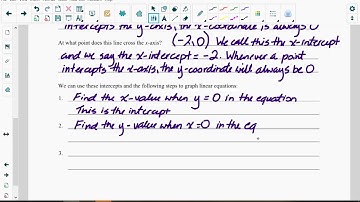 intercepts the y-axis, the x-coordinate is always 0
At what point does this line cross the x-axis? (-2,0) We call this the x-intercept
and we say the x-intercept = -2. Whenever a point
intercepts the x-axis, the y-coordinate will always be 0
We can use these intercepts and the following steps to graph linear equations:
1. Find the x-value when y = 0 in the equation
This is the intercept
2. Find the y-value when x = 0 in the eq
3.